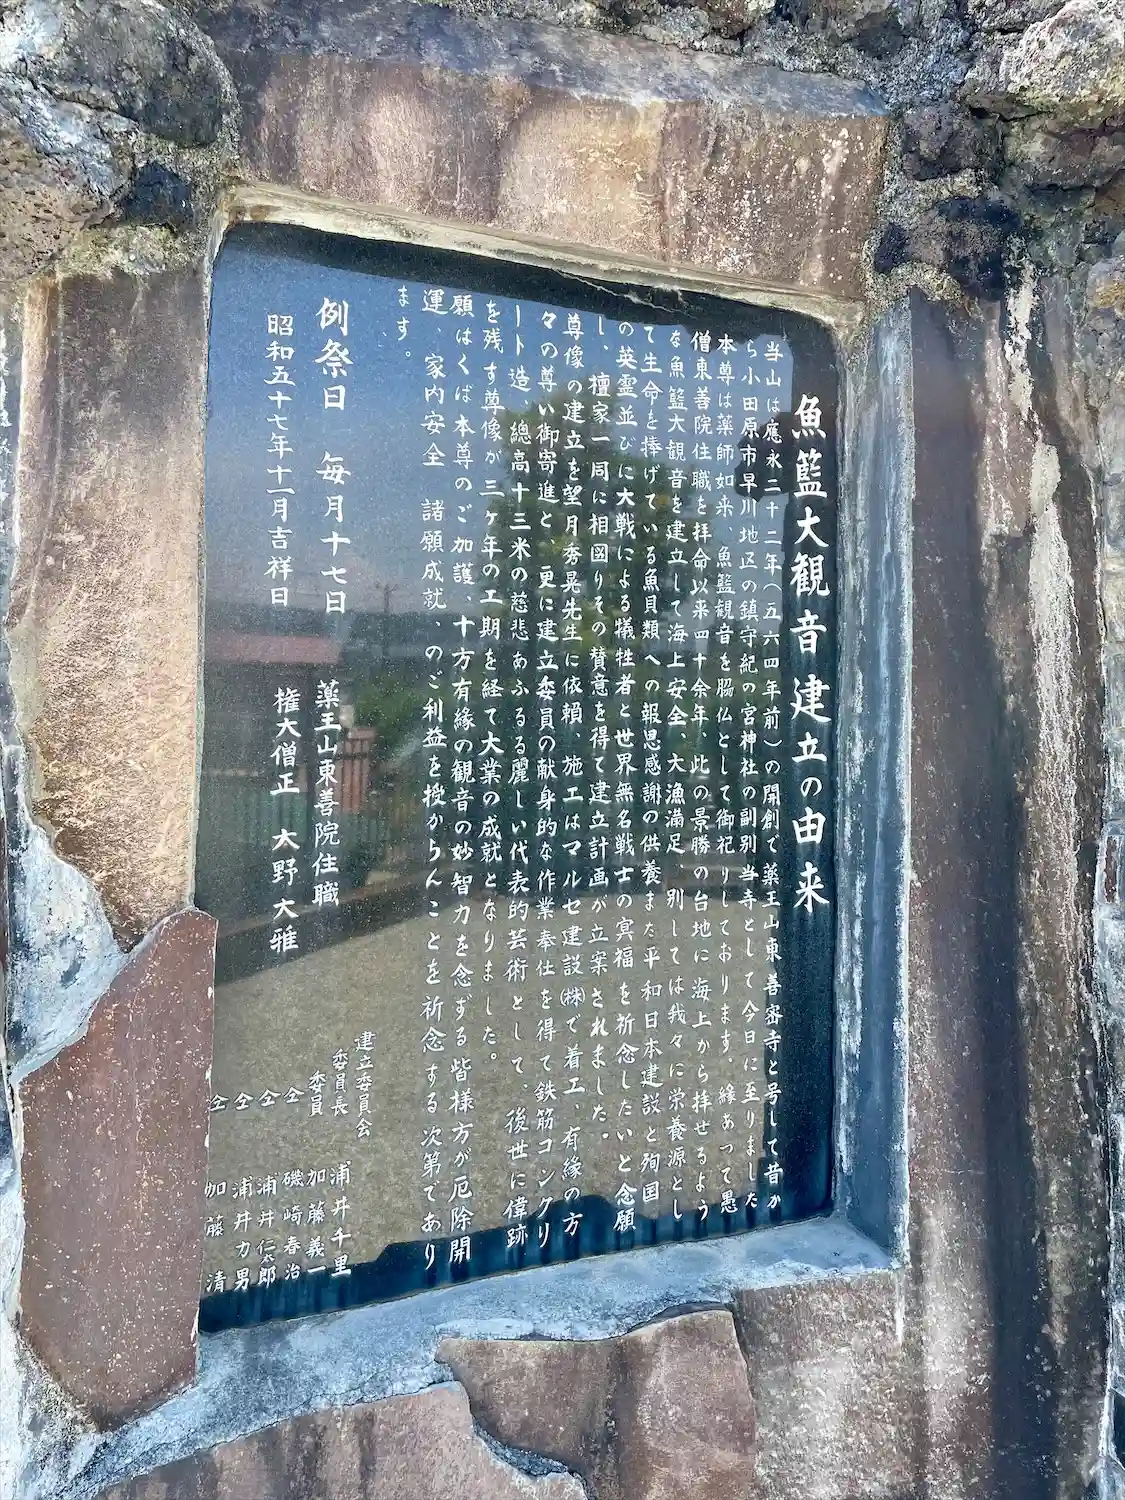 魚籃大観音建立の由来
当山は應永二十二年(五六四年前)の開創で薬王山東善密寺と号して昔か
ら小田原市早川地区の鎮守紀の宮神社の副別当寺として今日に至りました
本尊は薬師如来、魚籃観音を脇仏として御祀りしております。縁あって愚
僧東善院住職を拝命以来四十余年、此の景勝の台地に海上から拝せるよう
な魚籃大観音を建立して海上安全、大漁満足 別しては我々に栄養源とし
て生命を捧げている魚貝類への報恩感謝の供養また平和日本建設と殉国
の英霊並びに大戦による犠牲者と世界無名戦士の冥福を祈念したいと念願
し、檀家一同に相図りその賛意を得て建立計画が立案されました。
尊像の建立を望月秀晃先生に依頼、施工はマルセ建設㈱で着工、有縁の方
々の尊い御寄進と更に建立委員の献身的な作業奉仕を得て鉄筋コンクリ
ート造、總高十三米の慈悲あふるる麗しい代表的芸術として、後世に偉跡
を残す尊像が三ヶ年の工期を経て大業の成就となりました。
願はくば本尊のご加護、十方有縁の観音の妙智力を念ずる皆様方が厄除開
運、家内安全 諸願成就、のご利益を授からんことを祈念する次第であり
ます。
例祭日 毎月十七日 薬王山東善院住職
昭和五十七年十一月吉祥日 権大僧正 大野大雅
建立委員会
委員長 浦井千里
委員 加藤義一
仝 磯崎春治
仝 浦井仁太郎
仝 浦井力男
仝 加藤清